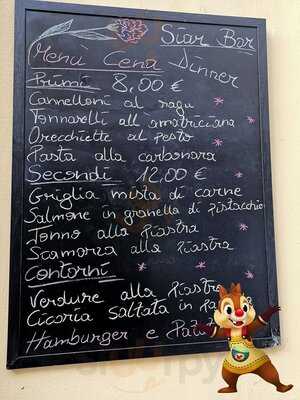 Siar Bar
Menù Cena Dinner
Primi 8,00 €
Cannelloni al ragu
Tonnarelli all'amatriciana
Orecchiette al pesto
Pasta alla carbonara
Secondi 12,00 €
Griglia mista di carne
Salmone in granella di pistacchio
Tonno alla piastra
Scamorza alla piastra
Contorni
Verdure alla piastra
Cicoria saltata in pa
Hamburger e Pata